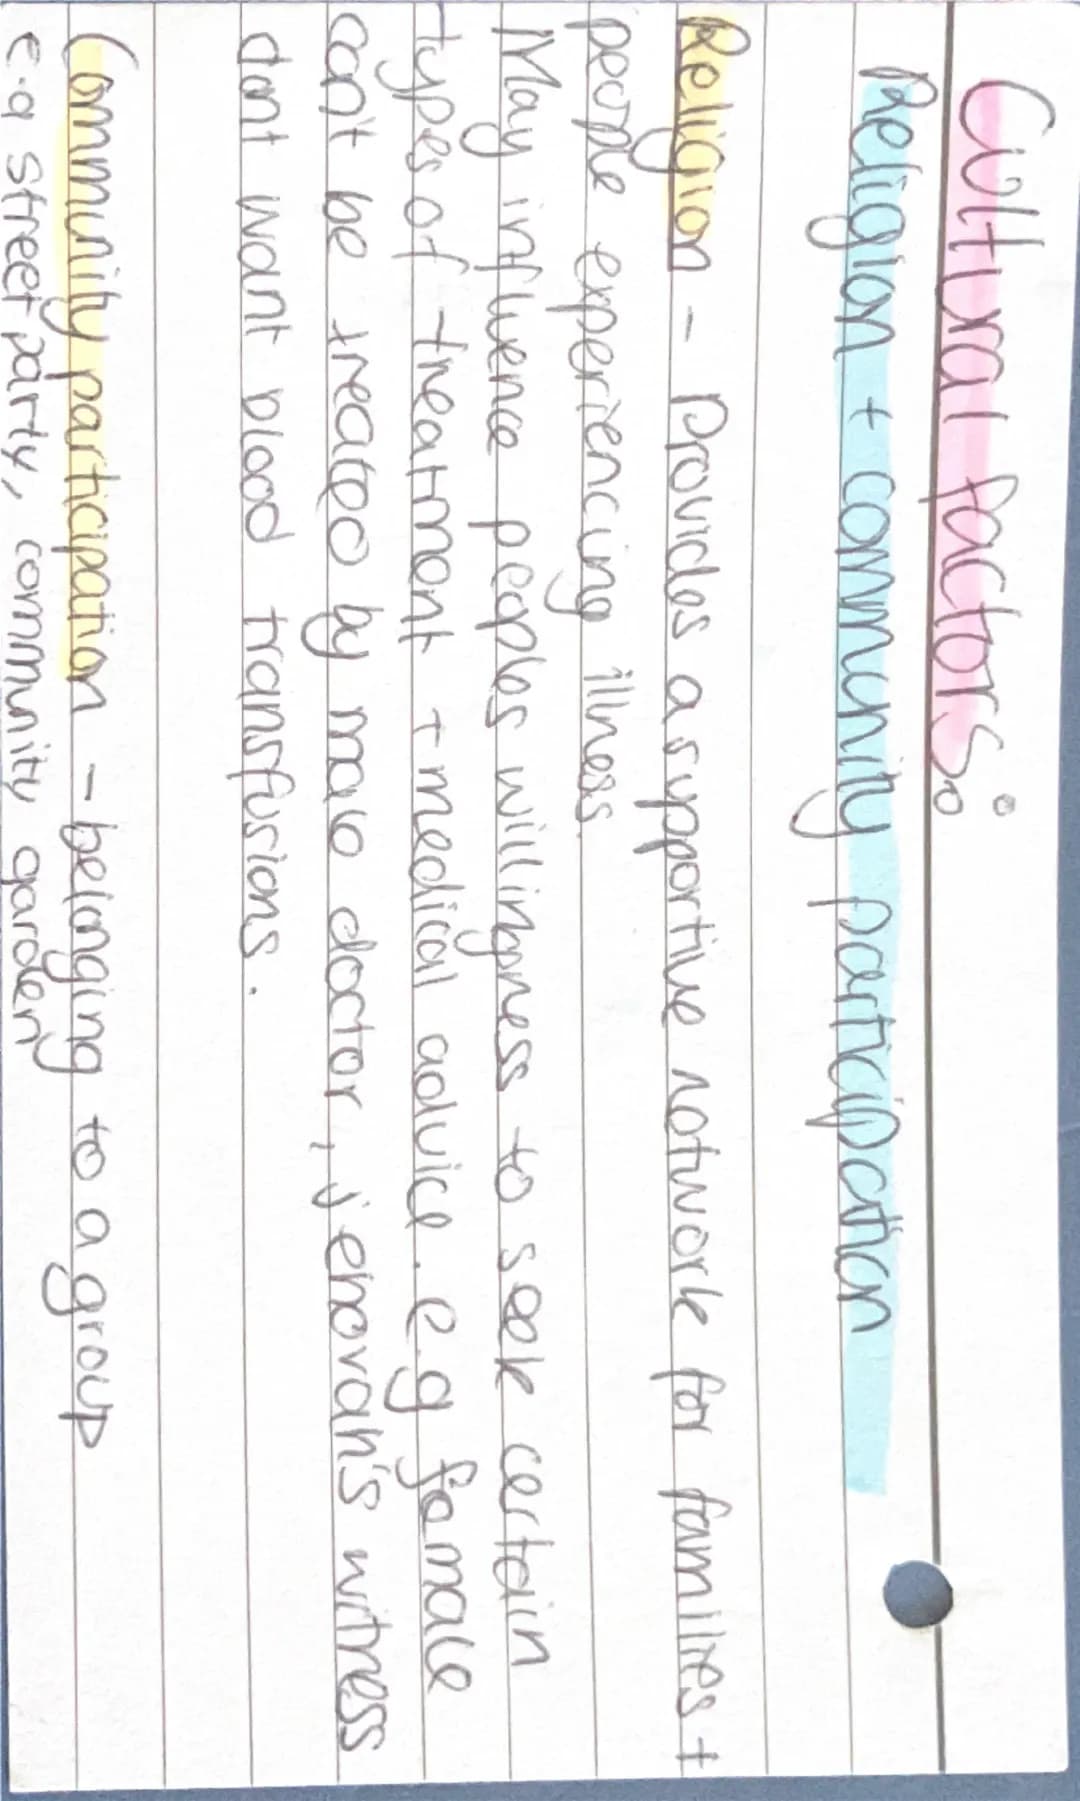 Cultural factors:
Religion + community participation
Religion - Provides a supportive network for families +
people experiencing illness.
May influence peoples willingness to seek certain
types of treatment + medical advice. e.g female
can't be treated by male doctor, jehovah's witness
dont want blood transfusions.
Community participation - belonging to a group
e.g street party, community garden